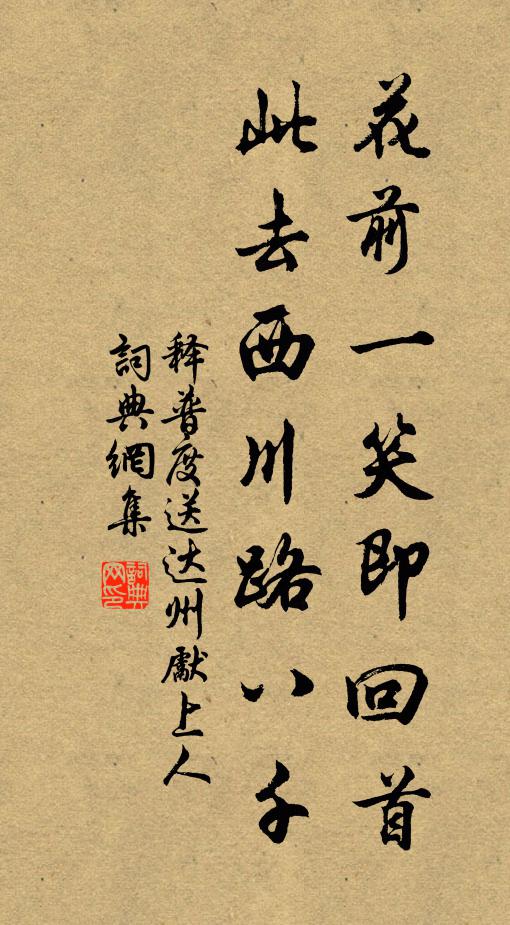 花前一笑即回首
此去西川路八千
释普度送达州獻上人
詞典網集
詞典网印